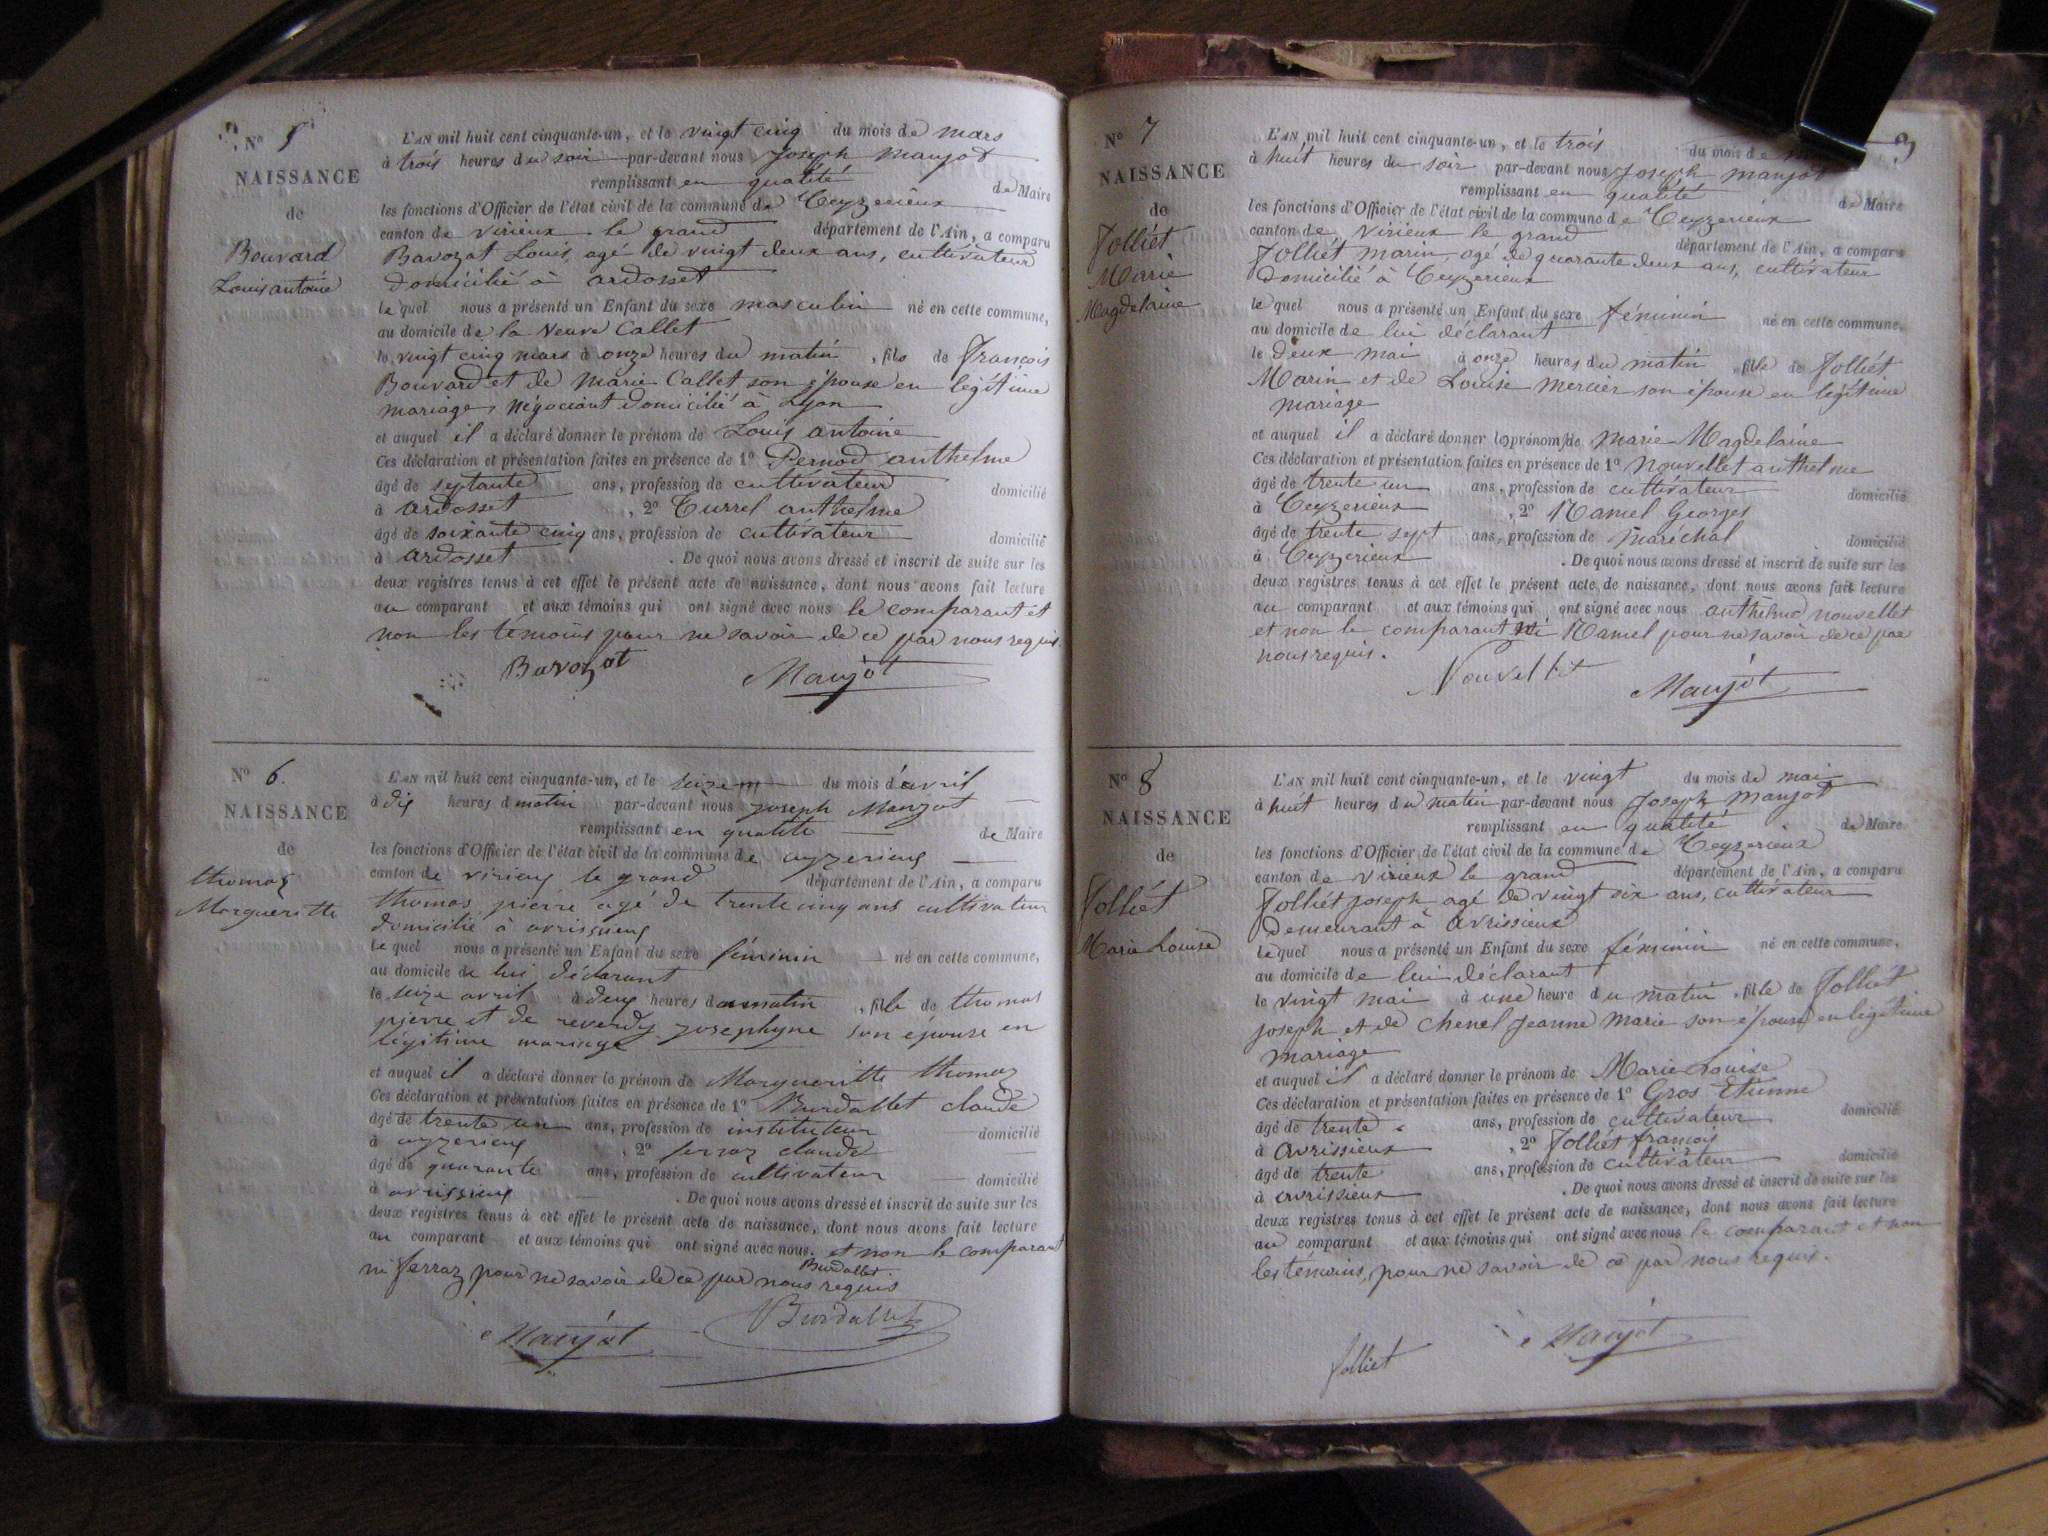 Nº 5
NAISSANCE
de
Bouvard
Louis antoine
L'AN mil huit cent cinquante-un, et le vingt cinq du mois de mars
à trois heures du soir par-devant nous Joseph Maujot
remplissant en qualité de Maire
les fonctions d'Officier de l'état civil de la commune de Ceyzerieux
canton de virieux le grand département de l'Ain, a comparu
Bavozat Louis, agé de vingt deux ans, cultivateur
domicilié à ardosset
le quel nous a présenté un Enfant du sexe masculin né en cette commune,
au domicile de la veuve Callet
le vingt cinq mars à onze heures du matin, fils de françois
Bouvard et de Marie Callet son épouse en légitime
mariage, négociant domicilié à Lyon
et auquel il a déclaré donner le prénom de Louis antoine
Ces déclaration et présentation faites en présence de 1º Pernod anthelme
âgé de septante ans, profession de cultivateur domicilié
à ardosset, 2º Turrel anthelme
âgé de soixante cinq ans, profession de cultivateur domicilié
à ardosset. De quoi nous avons dressé et inscrit de suite sur les
deux registres tenus à cet effet le présent acte de naissance, dont nous avons fait lecture
au comparant et aux témoins qui ont signé avec nous le comparant et
non les témoins pour ne savoir de ce par nous requis
Bavozat Maujot
Nº 6.
NAISSANCE
de
thomas
Margueritte
L'AN mil huit cent cinquante-un, et le seize du mois d'avril
à dix heures d matin par-devant nous joseph Maujot
remplissant en qualité de Maire
les fonctions d'Officier de l'état civil de la commune de ceyzerieux
canton de virieux le grand département de l'Ain, a comparu
thomas pierre agé de trente cinq ans cultivateur
domicilié à avrissieux
le quel nous a présenté un Enfant du sexe féminin né en cette commune,
au domicile de lui déclarant
le seize avril à deux heures du matin, fille de thomas
pierre et de reverdy josephyne son épouse en
légitime mariage
et auquel il a déclaré donner le prénom de Margueritte thomas
Ces déclaration et présentation faites en présence de 1º Burdallet claude
âgé de trente un ans, profession de instituteur domicilié
à ceyzerieux, 2º ferraz claude
âgé de quarante ans, profession de cultivateur domicilié
à avrissieux. De quoi nous avons dressé et inscrit de suite sur les
deux registres tenus à cet effet le présent acte de naissance, dont nous avons fait lecture
au comparant et aux témoins qui ont signé avec nous. et non le comparant
Burdallet
ni ferraz pour ne savoir de ce par nous requis
Maujot Burdallet
3
Nº 7
NAISSANCE
de
Jolliét
Marie
Magdelaine
L'AN mil huit cent cinquante-un, et le trois du mois de
à huit heures du soir par-devant nous Joseph Maujot
remplissant en qualité de Maire
les fonctions d'Officier de l'état civil de la commune de Ceyzerieux
canton de virieux le grand département de l'Ain, a comparu
Jolliét Marin, agé de quarante deux ans, cultivateur
domicilié à Ceyzerieux
le quel nous a présenté un Enfant du sexe féminin né en cette commune,
au domicile de lui déclarant
le deux mai à onze heures du matin, fille de Jolliét
Marin et de Louise Mercier son épouse en légitime
mariage
et auquel il a déclaré donner le prénom de Marie Magdelaine
Ces déclaration et présentation faites en présence de 1º Nouvellet anthelme
âgé de trente un ans, profession de cultivateur domicilié
à Ceyzerieux, 2º Hamel Georges
âgé de trente sept ans, profession de maréchal domicilié
à Ceyzerieux. De quoi nous avons dressé et inscrit de suite sur les
deux registres tenus à cet effet le présent acte de naissance, dont nous avons fait lecture
au comparant et aux témoins qui ont signé avec nous anthelme nouvellet
et non le comparant ni Hamel pour ne savoir de ce par
nous requis.
Nouvellet Maujot
Nº 8
NAISSANCE
de
Jolliét
Marie Louise
L'AN mil huit cent cinquante-un, et le vingt du mois de mai
à huit heures du matin par-devant nous Joseph Maujot
remplissant en qualité de Maire
les fonctions d'Officier de l'état civil de la commune de Ceyzerieux
canton de virieux le grand département de l'Ain, a comparu
Jolliét joseph agé de vingt six ans, cultivateur
demeurant à avrissieux
le quel nous a présenté un Enfant du sexe féminin né en cette commune,
au domicile de lui déclarant
le vingt mai à une heure du matin, fille de Jolliét
joseph et de Chenel jeanne Marie son épouse en légitime
mariage
et auquel il a déclaré donner le prénom de Marie Louise
Ces déclaration et présentation faites en présence de 1º Gros Etienne
âgé de trente ans, profession de cultivateur domicilié
à avrissieux, 2º Jolliét françois
âgé de trente ans, profession de cultivateur domicilié
à avrissieux. De quoi nous avons dressé et inscrit de suite sur les
deux registres tenus à cet effet le présent acte de naissance, dont nous avons fait lecture
au comparant et aux témoins qui ont signé avec nous le comparant et non
les témoins, pour ne savoir de ce par nous requis.
Jolliet Maujot